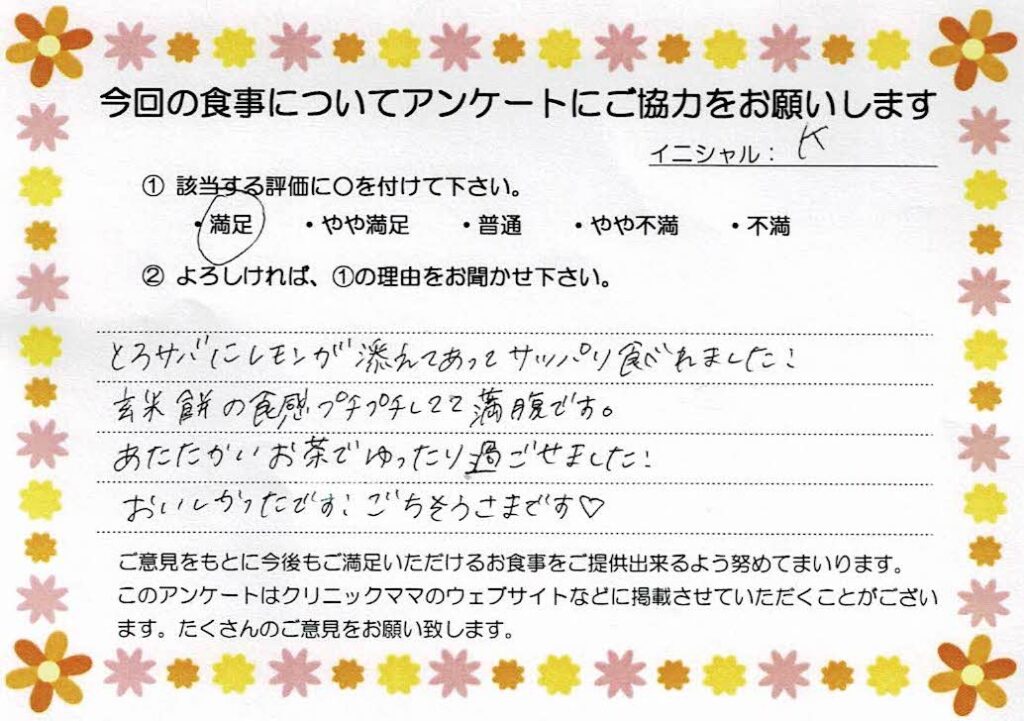 今回の食事についてアンケートにご協力をお願いします
イニシャル： K
① 該当する評価に〇を付けて下さい。
・満足 ・やや満足 ・普通 ・やや不満 ・不満
② よろしければ、①の理由をお聞かせ下さい。
とろサバにレモンが添えてあってサッパリ食べれました！
玄米餅の食感プチプチしてて満腹です。
あたたかいお茶でゆったり過ごせました！
おいしかったです！ごちそうさまです♡
ご意見をもとに今後もご満足いただけるお食事をご提供出来るよう努めてまいります。
このアンケートはクリニックママのウェブサイトなどに掲載させていただくことがござい
ます。たくさんのご意見をお願い致します。